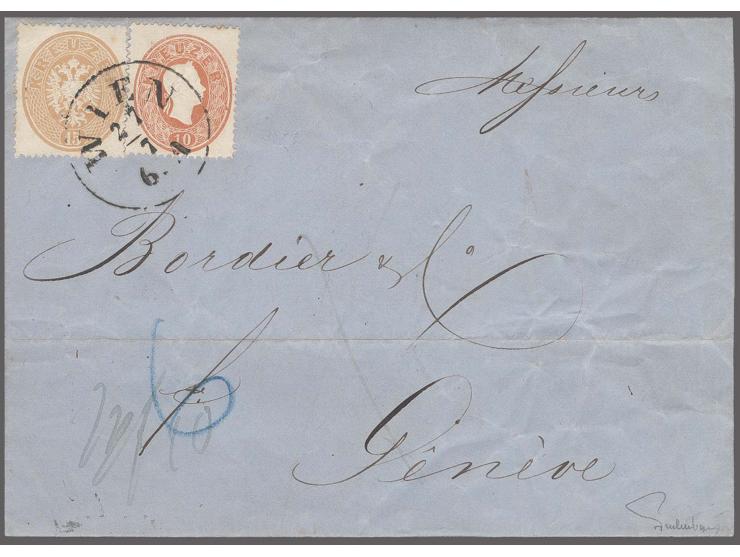 KREUZER
15
KREUZER
10
WIEN
27
7
6. A
Messieurs
Bordier & Co
6
Genève